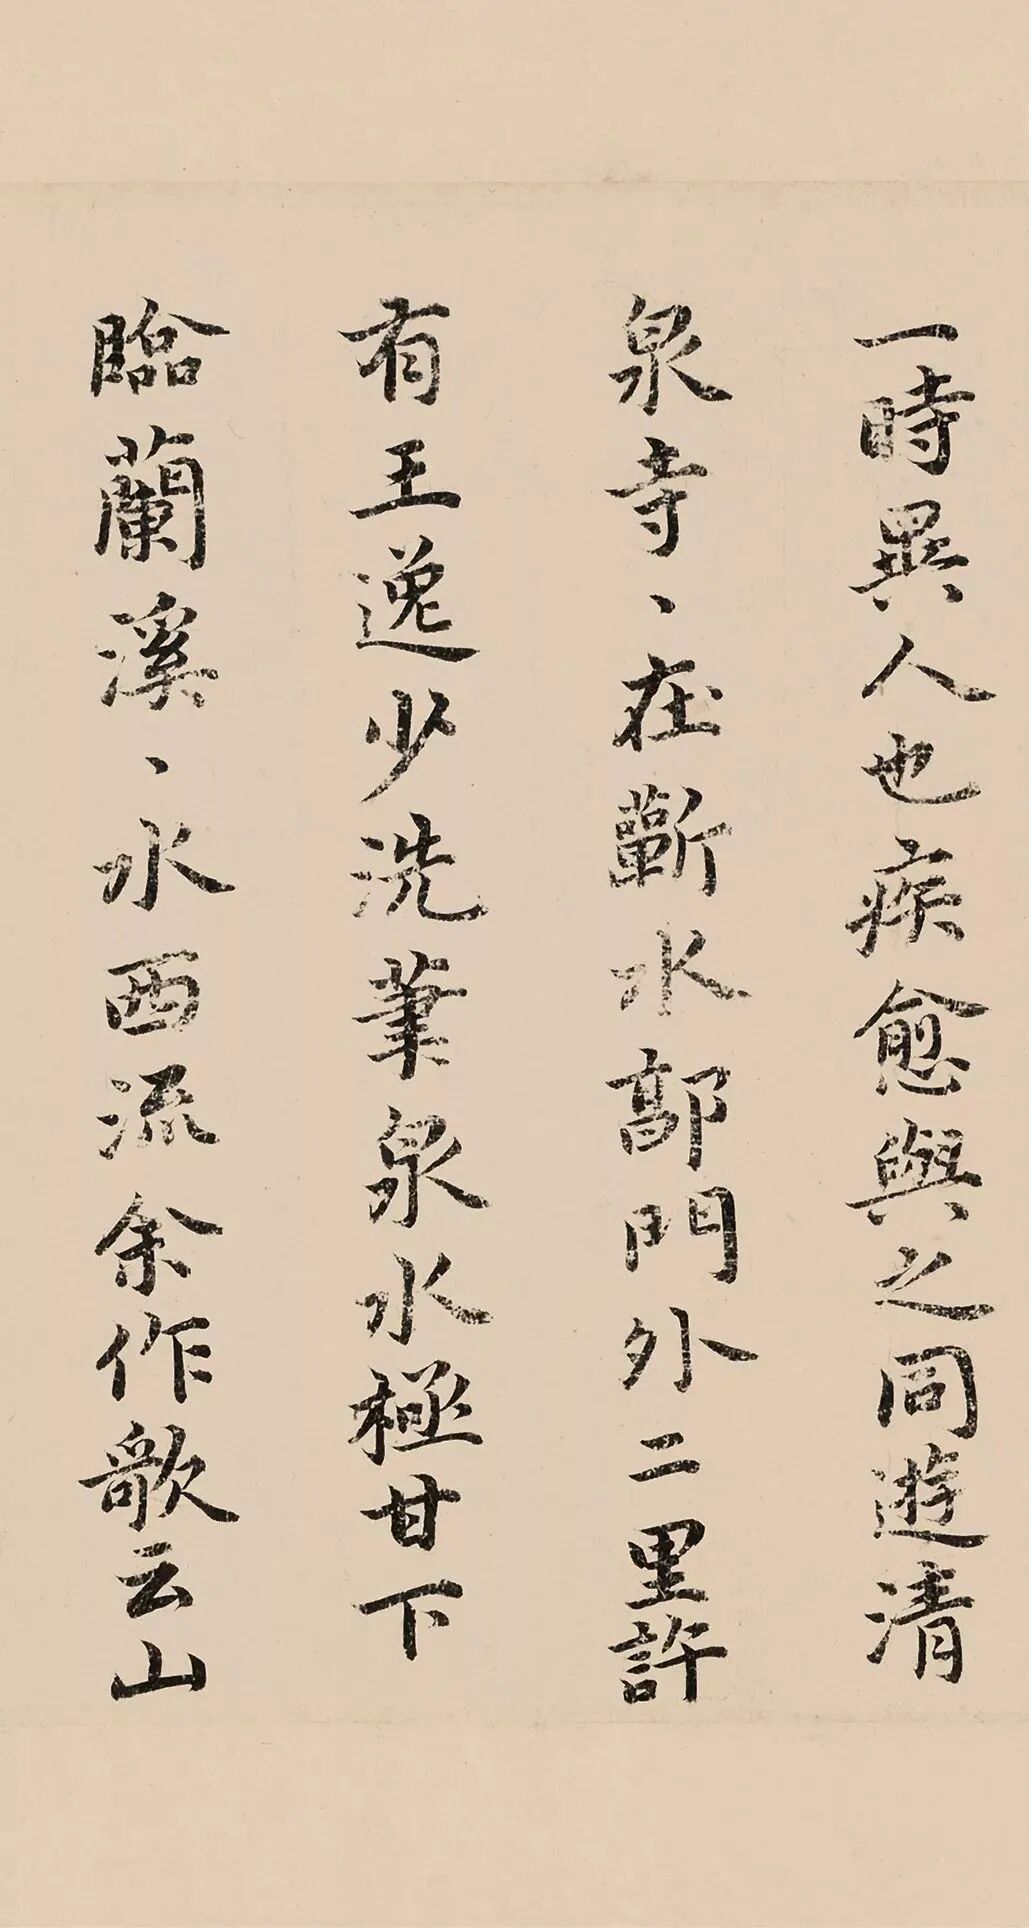 一時異人也疾愈與之同遊清
泉寺、在蘄水郭門外二里許
有王逸少洗筆泉水極甘下
臨蘭溪、水西流余作歌云山